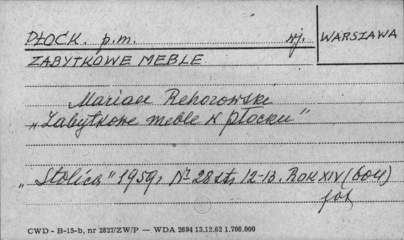 PŁOCK. p.m. rj. WARSZAWA
ZABYTKOWE MEBLE
Marian Rehorowski
„Zabytkowe meble w Płocku"
„Stolica" 1959r Nr 28 str. 12-13. ROK XIV (604)
fot
CWD - B-15-b, nr 2827/ZW/P — WDA 2694 13.12.62 1.700.000